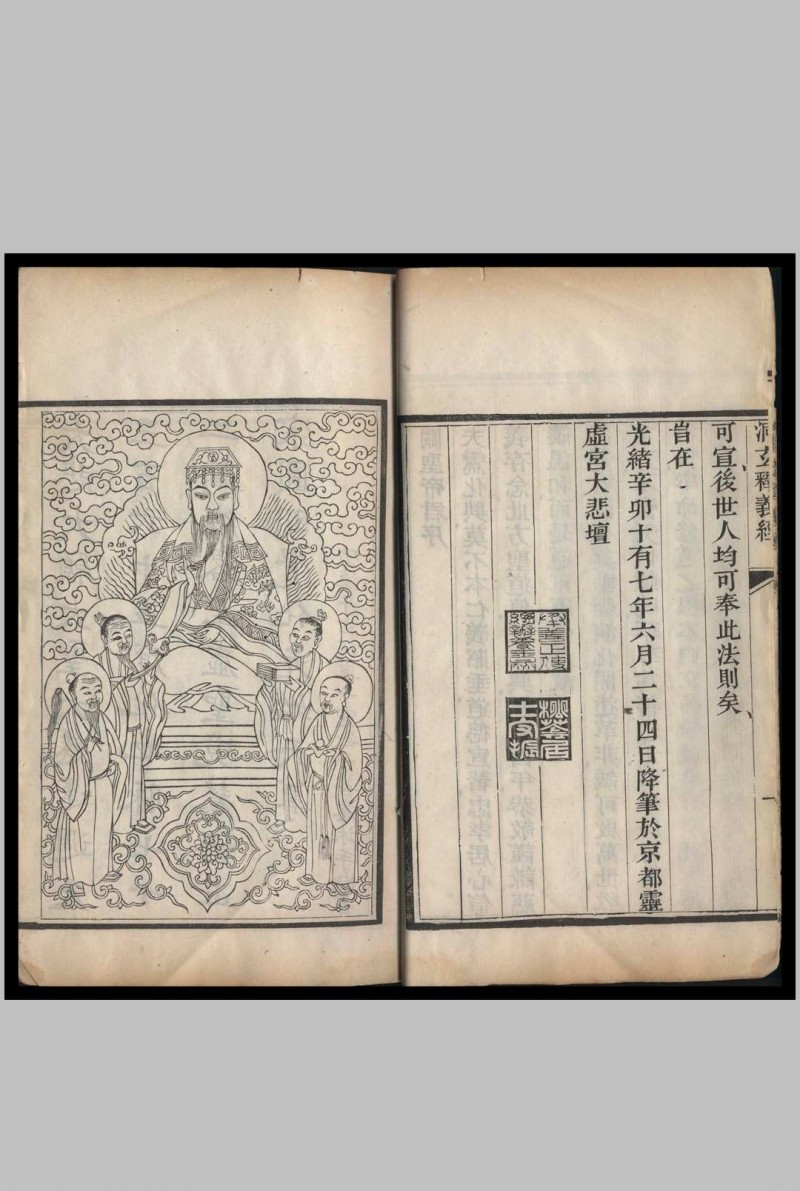 洞玄釋義經
可宣後世人均可奉此法則矣
旨在
光緒辛卯十有七年六月二十四日降筆於京都靈
虛宮大悲壇